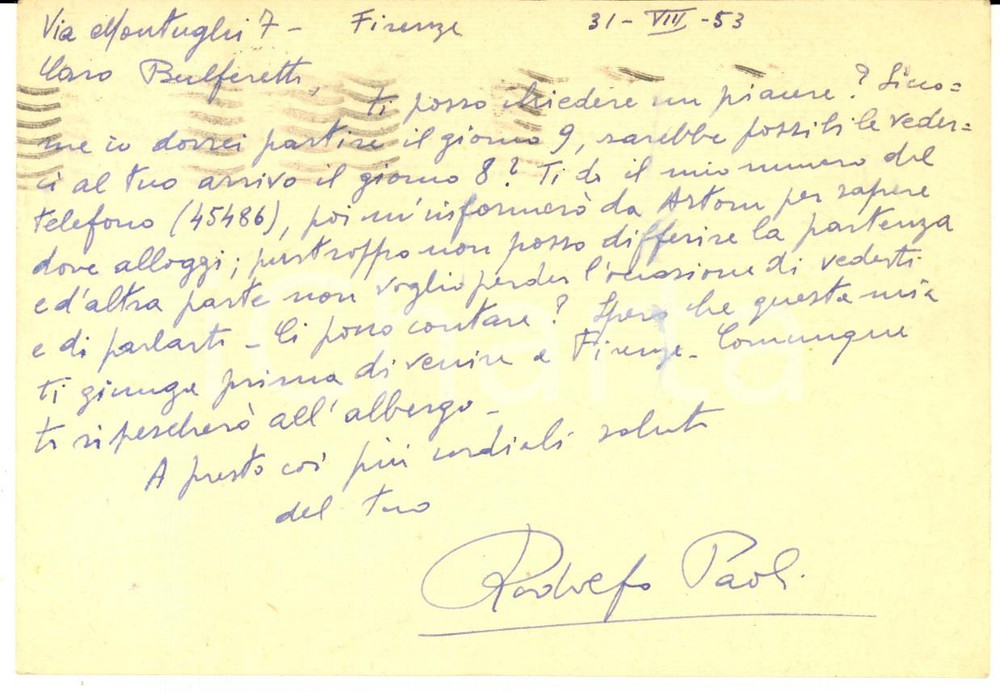 Via Montughi 7 - Firenze 31 - VIII - 53
Caro Bulferetti,
ti posso chiedere un piacere? Sicco=
me io dovrei partire il giorno 9, sarebbe possibile veder=
ci al tuo arrivo il giorno 8? Ti do il mio numero del
telefono (45486), poi m'informerò da Artom per sapere
dove alloggi; purtroppo non posso differire la partenza
e d'altra parte non voglio perder l'occasione di vederti
e di parlarti - Ci posso contare? Spero che questa mia
ti giunga prima di venire a Firenze - Comunque
ti ripescherò all'albergo -
A presto coi più cordiali saluti
del tuo
Rodolfo Paoli
iCharta